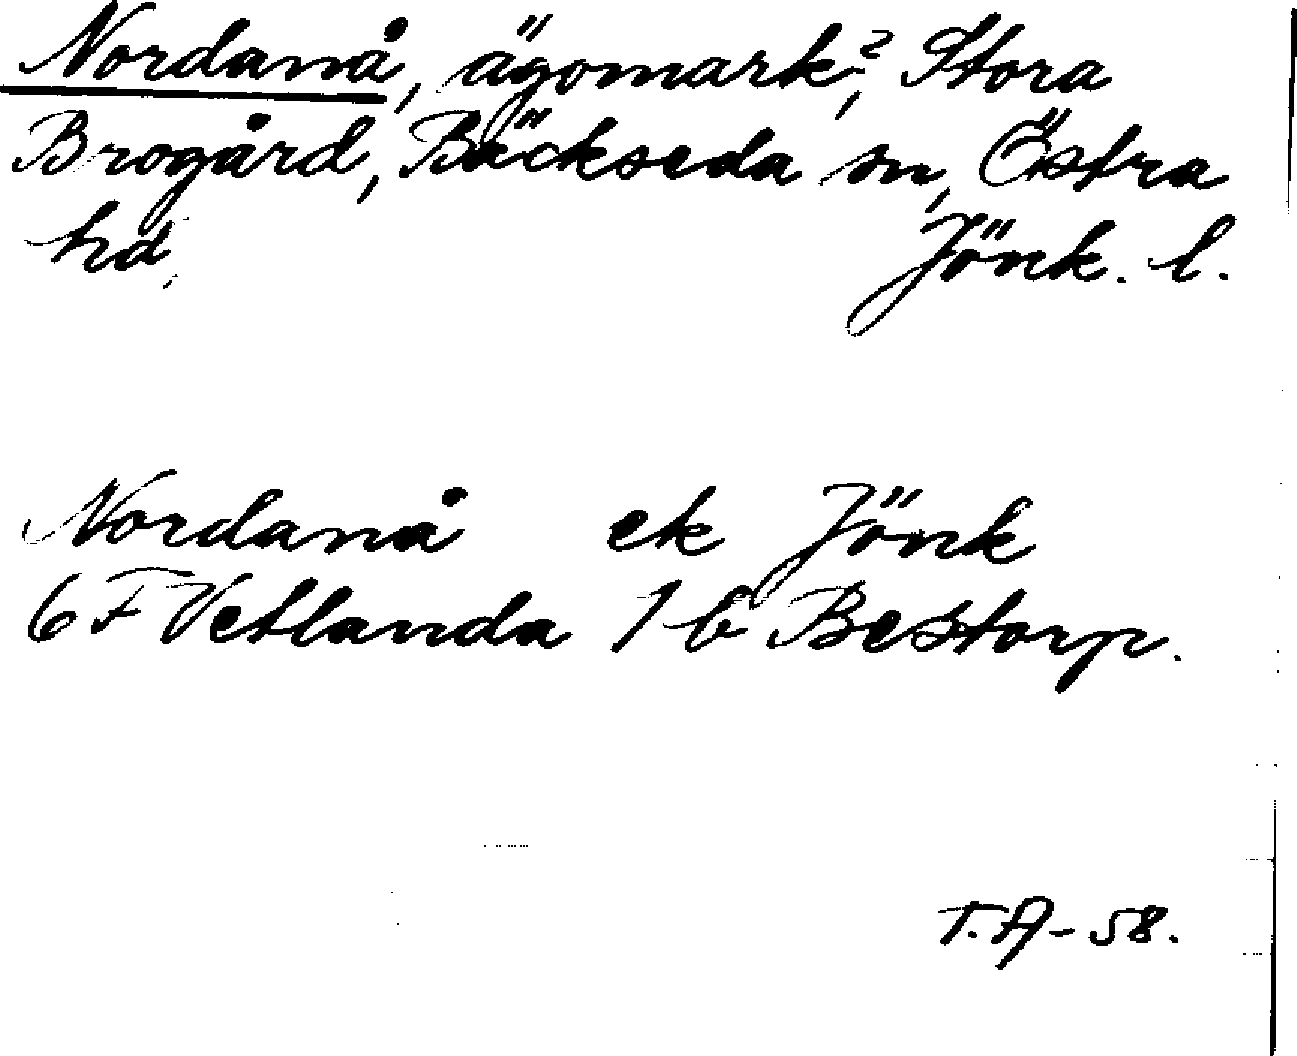 Nordanå, ägomark?, Stora
Brogård, Bäckseda sn, Östra
hd, Jönk. l.
Nordanå ek Jönk
6 F Vetlanda 1 b Bestorp.
T.A-58.